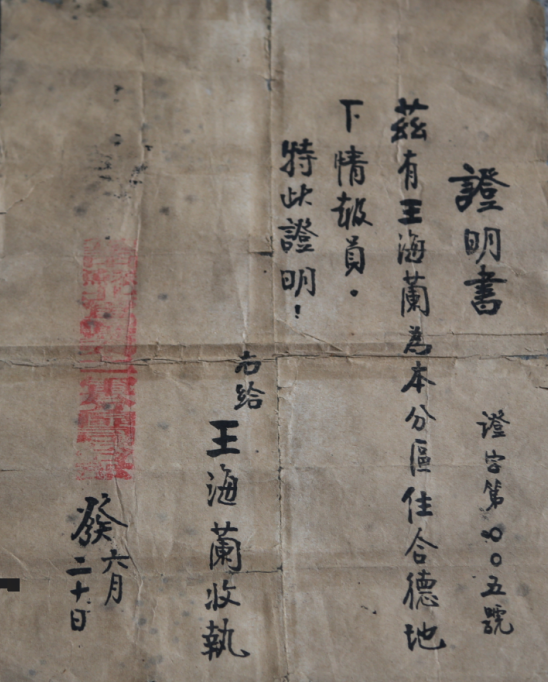 證明書
證字第〇〇五號
茲有王海蘭為本分區住合德地
下情報員.
特此證明!
右給
王海蘭收執
發
六月
二十日